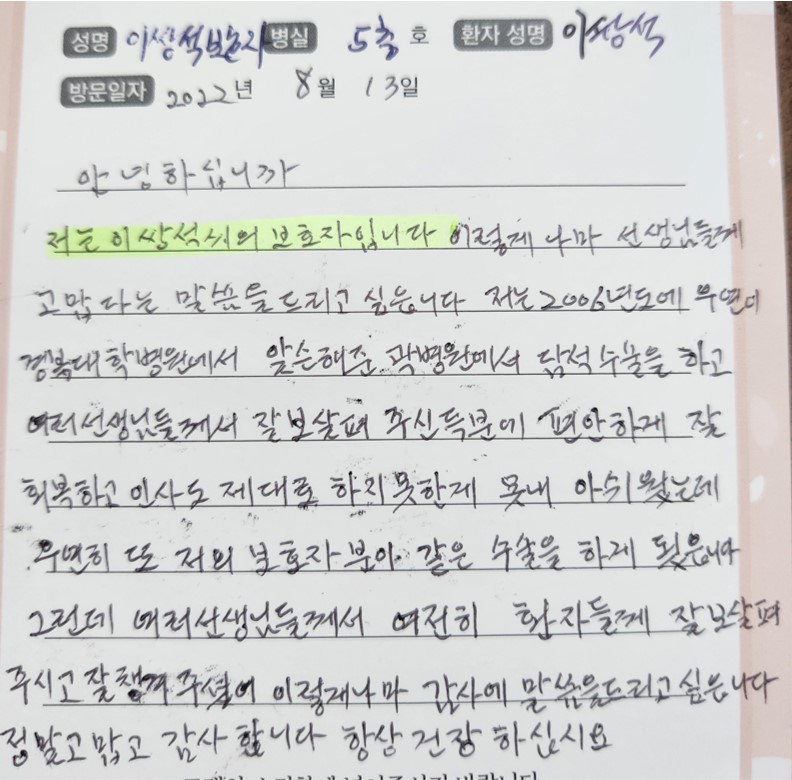 성명 이쌍석보호자 병실 5층 호 환자 성명 이쌍석
방문일자 2022년 8월 13일
안녕하십니까
저는 이쌍석씨의 보호자입니다 이렇게 나마 선생님들께
고맙다는 말씀을드리고 싶읍니다 저는2006년도에 우연이
경북대학병원에서 알선해준 곽병원에서 담석수술을 하고
여러선생님들께서 잘보살펴 주신득분에 편안하게 잘
회복하고 인사도 제대로 하지못한게 못내 아쉬웠는데
우연히 또 저의 보호자분이 같은 수술을 하게 됬읍니다
그런데 여러선생님들께서 여전히 환자들께 잘보살펴
주시고 잘챙겨주셨어 이렇게나마 감사에 말씀을드리고싶읍니다
정말고맙고 감사 합니다 항상 건강 하십시요